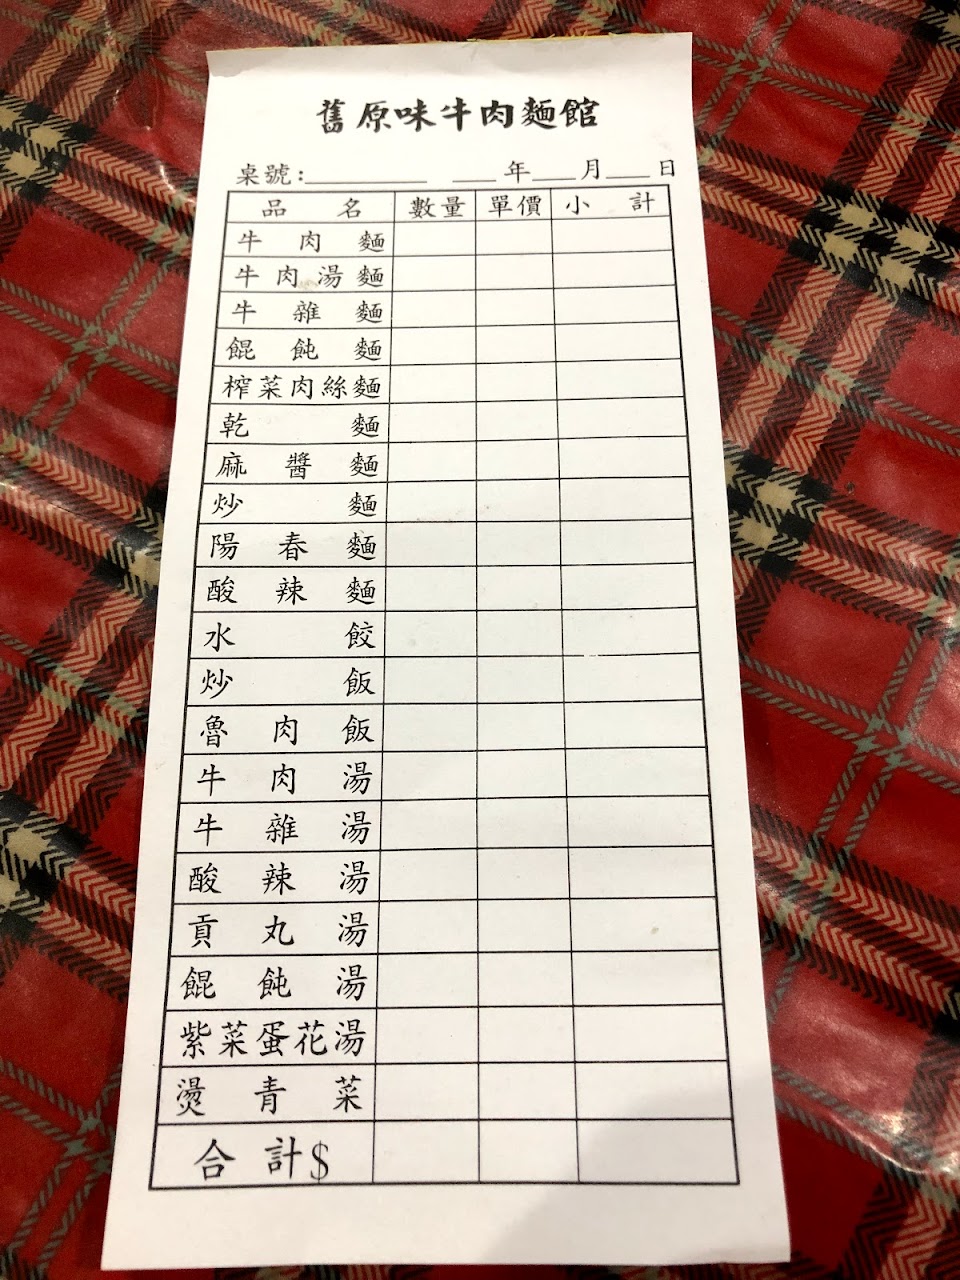 舊原味牛肉麵館
桌號:________ ___年___月___日
品名 數量 單價 小計
牛肉麵
牛肉湯麵
牛雜麵
餛飩麵
榨菜肉絲麵
乾麵
麻醬麵
炒麵
陽春麵
酸辣麵
水餃
炒飯
魯肉飯
牛肉湯
牛雜湯
酸辣湯
貢丸湯
餛飩湯
紫菜蛋花湯
燙青菜
合計$